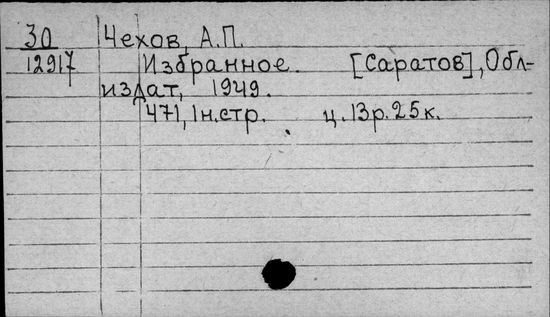 30 Чехов, А.П.
12917 Избранное. [Саратов], Обл-
издат, 1949.
471, 1н.стр. ц.13р.25к.